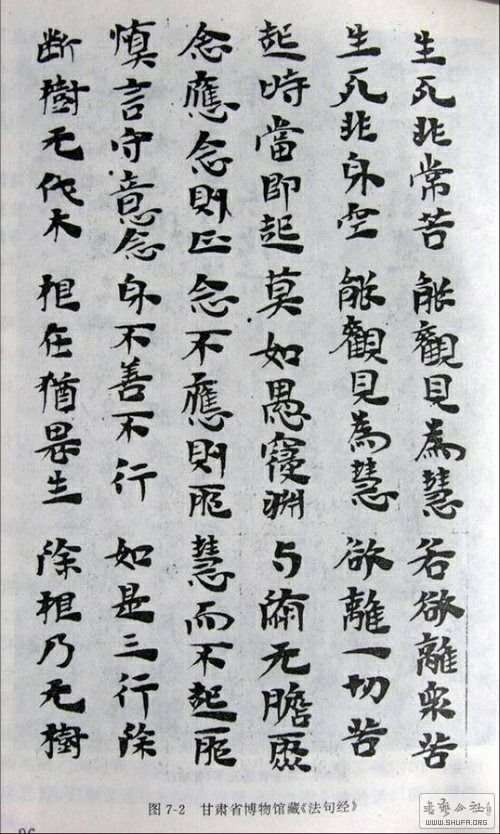 生死非常苦 能觀見為慧 若欲離衆苦
生死非身空 能觀見為慧 欲離一切苦
起時當即起 莫如愚淵 与无瞻聚
念應念則正 念不應則邪 慧而不起邪
慎言守意念 身不善不行 如是三行除
断樹无伐木 根在猶生 除根乃无樹
图 7-2 甘肃省博物馆藏《法句经》
WWW.SHUFA.ORG